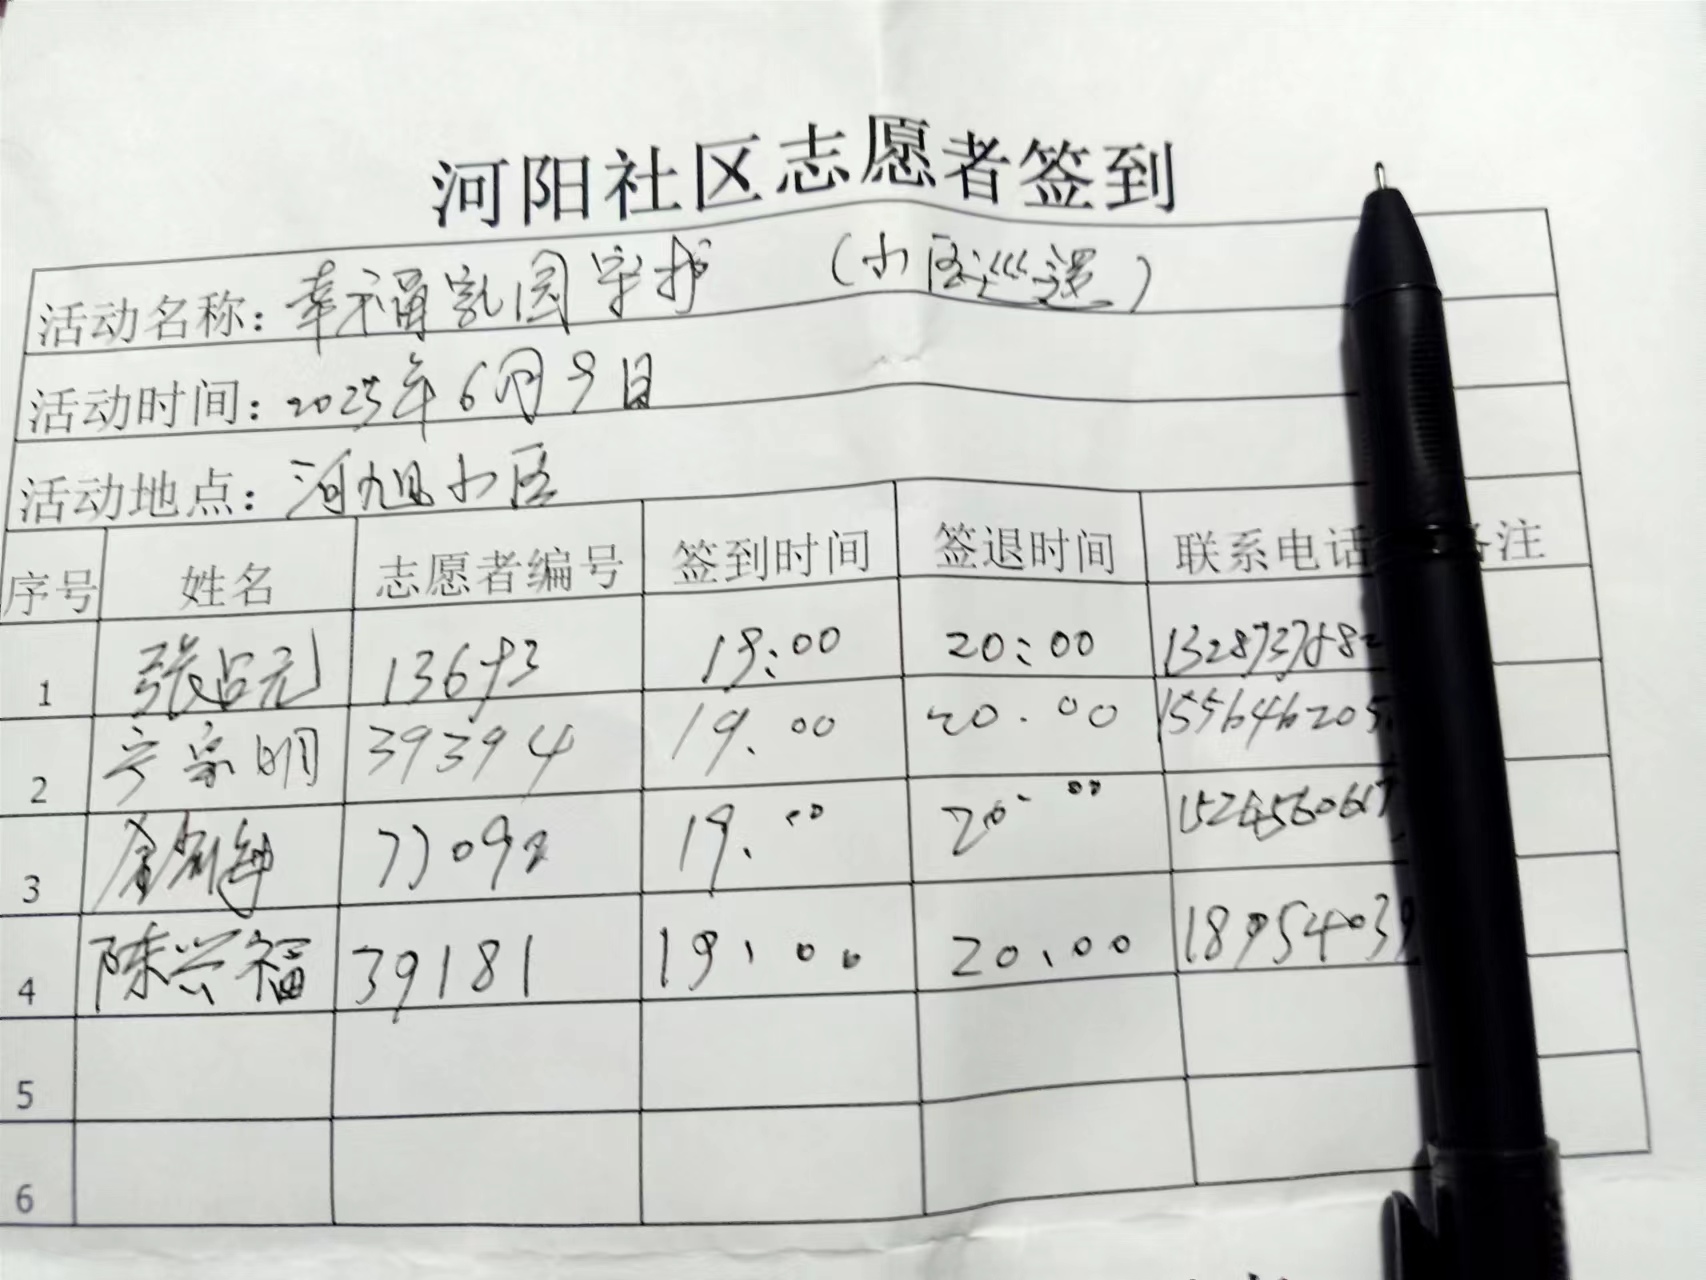 河阳社区志愿者签到
活动名称：幸福家园守护 （小区巡逻）
活动时间：2025年6月9日
活动地点：河旭小区
序号 姓名 志愿者编号 签到时间 签退时间 联系电话 备注
1 张占元 13693 19:00 20:00
2 宁宗明 39394 19.00 20.00 155646205
3 19.00 20.00
4 陈兴福 39181 19.00 20.00
5
6